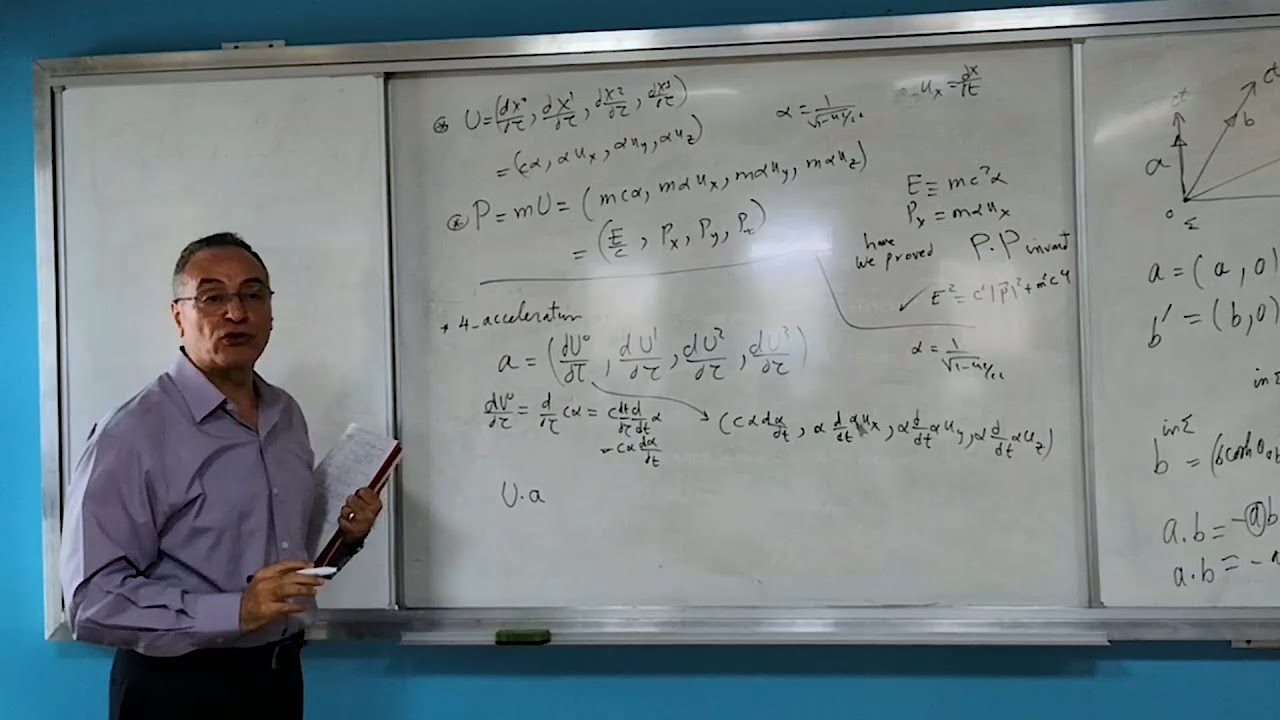 U = (dx⁰/dτ, dx¹/dτ, dx²/dτ, dx³/dτ)
= (cα, αu_x, αu_y, αu_z)
P = mU = (mcα, mαu_x, mαu_y, mαu_z)
= (E/c, P_x, P_y, P_z)
α = 1/√(1-u²/c²)
u_x = dx/dt
E ≡ mc²α
P_x = mαu_x
have
we proved P.P invant
✓ E² = c²|P⃗|² + m²c⁴
α = 1/√(1-u²/c²)
* 4-acceleration
a = (dU⁰/dτ, dU¹/dτ, dU²/dτ, dU³/dτ)
dU⁰/dτ = d/dτ cα = c dt/dτ d/dt α
= cα dα/dt
(cα dα/dt, α d/dt αu_x, α d/dt αu_y, α d/dt αu_z)
U.a
ct
b
a
o
Σ
a = (a, 0)
b' = (b, 0)
in Σ
b = (b cosh θ
a.b = -ab
a.b = -